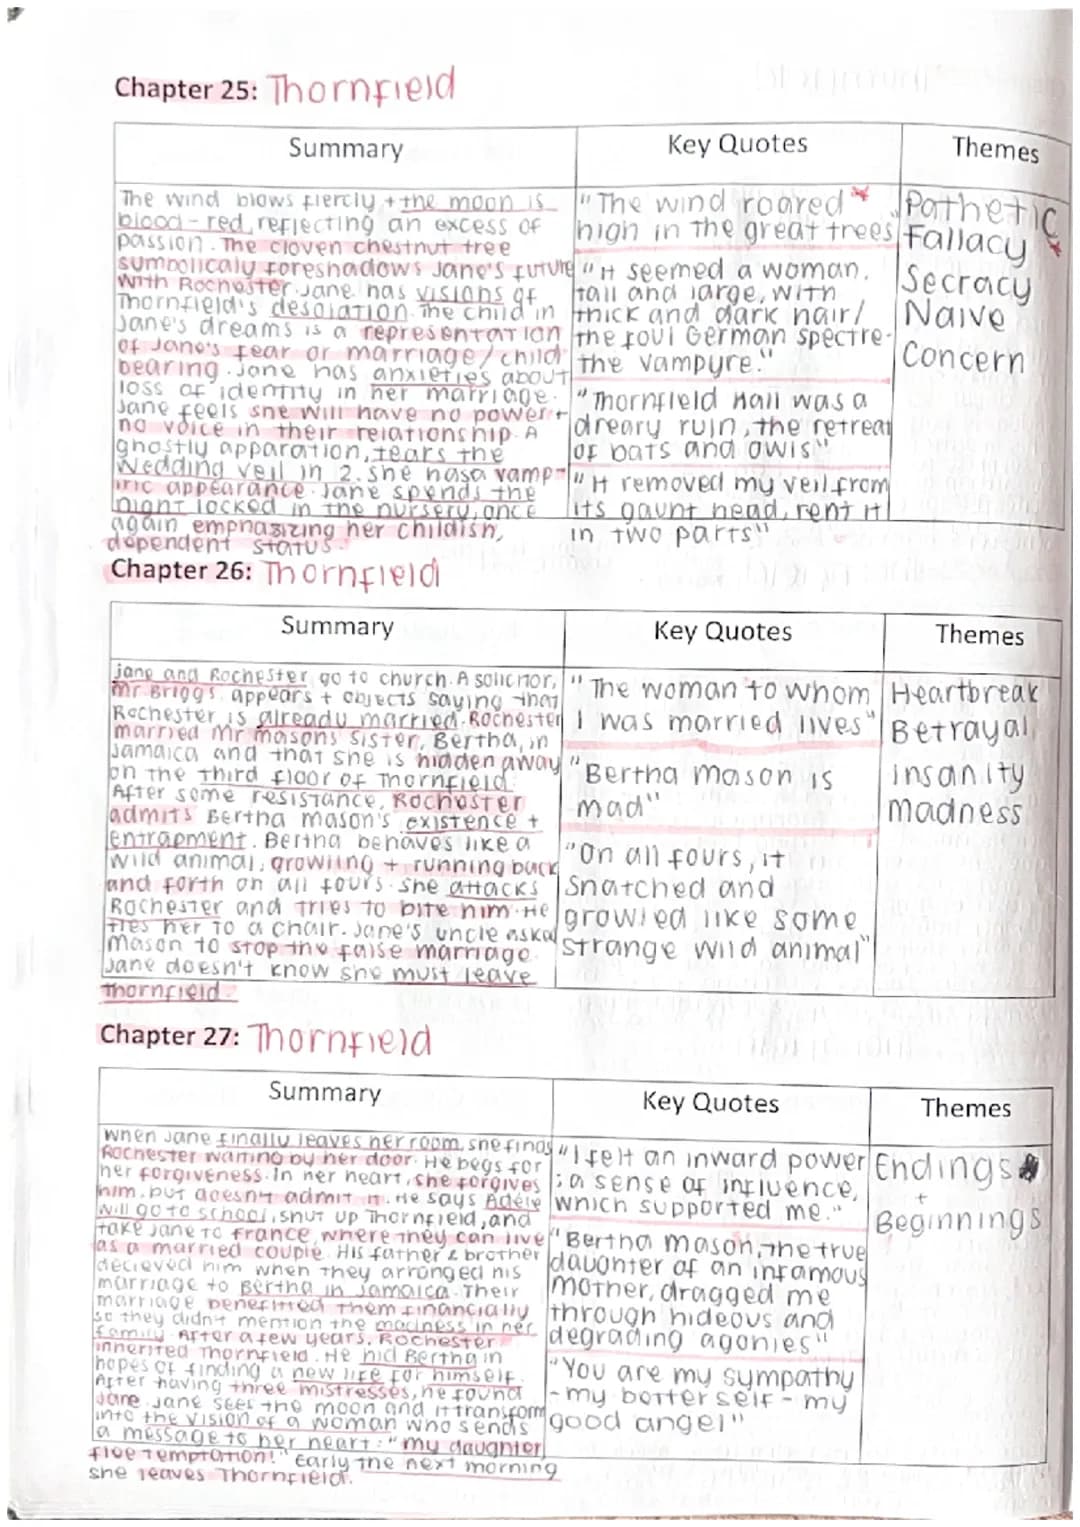 Chapter 25: Thornfield
Summary
Key Quotes
Themes
The wind blows fiercly + the moon is
blood-red, reflecting an excess of
passion. The cloven chestnut tree
symbolicaly foreshadows Jane's future
with Rochester. Jane has visions of
Thornfield's desolation. The child in
Jane's dreams is a representation
of Jane's fear or marriage/child
bearing. Jane has anxieties about
loss of identity in her marriage.
Jane feels she will have no power +
no voice in their relationship. A
ghostly apparation, tears the
Wedding veil in 2. she has a vamp-
iric appearance. Jane spends the
night locked in the nursery, once
again emphasizing her childish,
dependent status.
"The wind roared *
high in the great trees"
"It seemed a woman,
tall and large, with
thick and dark hair/
the foul German spectre-
the vampyre."
"Thornfield Hall was a
dreary ruin, the retreat
of bats and owls"
"It removed my veil from
its gaunt head, rent it
in two parts"
Pathetic
Fallacy *
Secracy
Naive
Concern
Chapter 26: Thornfield
Summary
Key Quotes
Themes
Jane and Rochester go to church. A solicitor,
Mr Briggs, appears + objects saying that
Rochester is already married. Rochester
married Mr masons sister, Bertha, in
Jamaica and that she is hidden away
on the third floor of Thornfield.
After some resistance, Rochester
admits Bertha mason's existence +
entrapment. Bertha behaves like a
wild animal, growling + running back
and forth on all fours. She attacks
Rochester and tries to bite him. He
ties her to a chair. Jane's uncle asked
Mason to stop the false marriage.
Jane doesn't know she must leave
Thornfield.
"The woman to whom
I was married lives"
"Bertha mason is
mad"
"On all fours, it
snatched and
growled like some
strange wild animal"
Heartbreak
Betrayal
insanity
madness
Chapter 27: Thornfield
Summary
Key Quotes
Themes
When Jane finally leaves her room, she finds
Rochester waiting by her door. He begs for
her forgiveness. In her heart, she forgives
him, but doesn't admit it. He says Adéle
will go to school, shut up Thornfield, and
take Jane to France, where they can live
as a married couple. His father & brother
decieved him when they arranged his
marriage to Bertha in Jamaica. Their
marriage benefitted them financially
so they didn't mention the madness in her
family. After a few years, Rochester
inherited Thornfield. He hid Bertha in
hopes of finding a new life for himself.
After having three mistresses, he found
Jane. Jane sees the moon and it transform
into the vision of a woman who sends
a message to her heart: "my daughter,
flee temptation!" Early the next morning
she leaves Thornfield.
"I felt an inward power
; a sense of influence,
which supported me."
"Bertha mason, the true
daughter of an infamous
mother, dragged me
through hideous and
degrading agonies"
"You are my sympathy
- my better self - my
good angel"
Endings
+
Beginnings